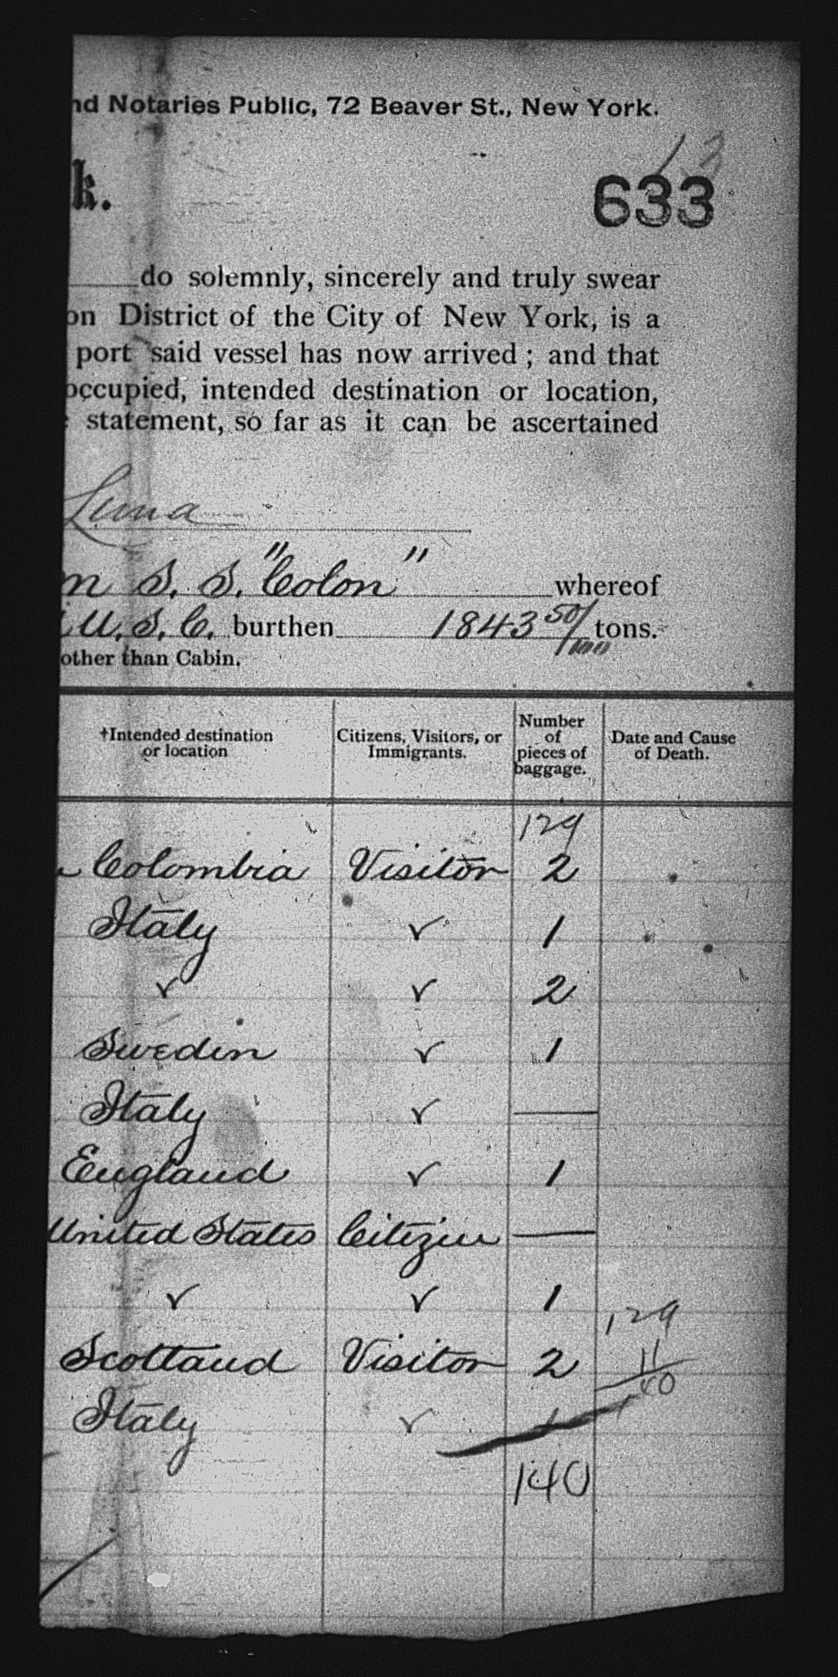 nd Notaries Public, 72 Beaver St., New York.
k.
633
do solemnly, sincerely and truly swear
on District of the City of New York, is a
port said vessel has now arrived ; and that
occupied, intended destination or location,
statement, so far as it can be ascertained
Luna
m S. S. "Colon" whereof
U. S. C. burthen 1843 50/100 tons.
other than Cabin.
†Intended destination or location Citizens, Visitors, or Immigrants. Number of pieces of baggage. Date and Cause of Death.
129
Colombia Visitor 2
Italy ✓ 1
✓ ✓ 2
Sweden ✓ 1
Italy ✓ —
England ✓ 1
United States Citizen —
✓ ✓ 1
129
Scotland Visitor 2 11
40
Italy ✓ 1
140